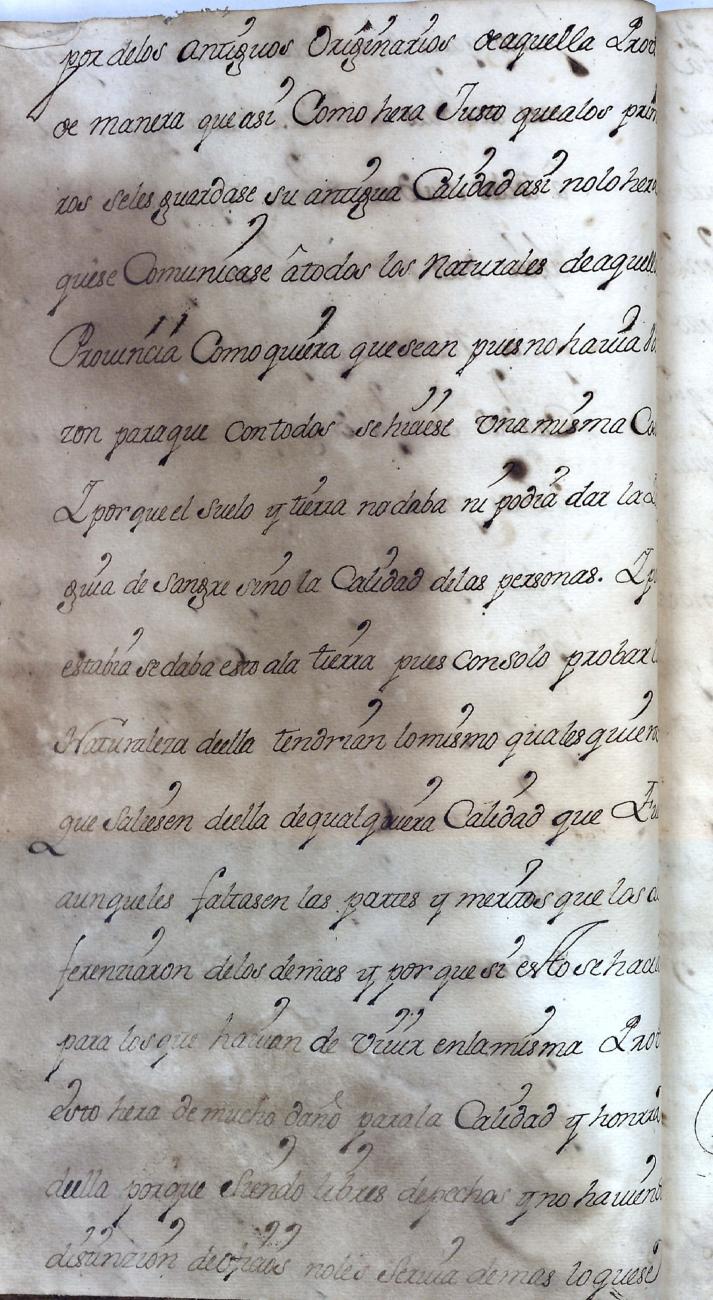 por delos antiguos Originarios de aquella Prov
de manera que asi Como hera Justo quealos prim
ros seles guardase su antigua Calidad asi nolo hera
quese Comunicase âtodos los Naturales de aquell
Provincia Como quiera que sean pues no havia
zon paraque con todos se hiciese una misma Co
I por que el suelo y tierra no daba ni podia dar la
guia de sangre sino la Calidad delas personas. I
estabia se daba esto ala tierra pues con solo probar l
Naturaleza della tendrian lo mismo quales quiera
que saliesen della dequalquiera Calidad que Fu
aunqueles faltasen las partes y meritos que los
ferenziaron delos demas y por que si esto se hacia
para los que havian de vivir enlamisma Prov
esto hera de mucho daño parala Calidad y honrra
della porque siendo libres depechos y no havien
distinzion de otraos noles servia demas lo quese